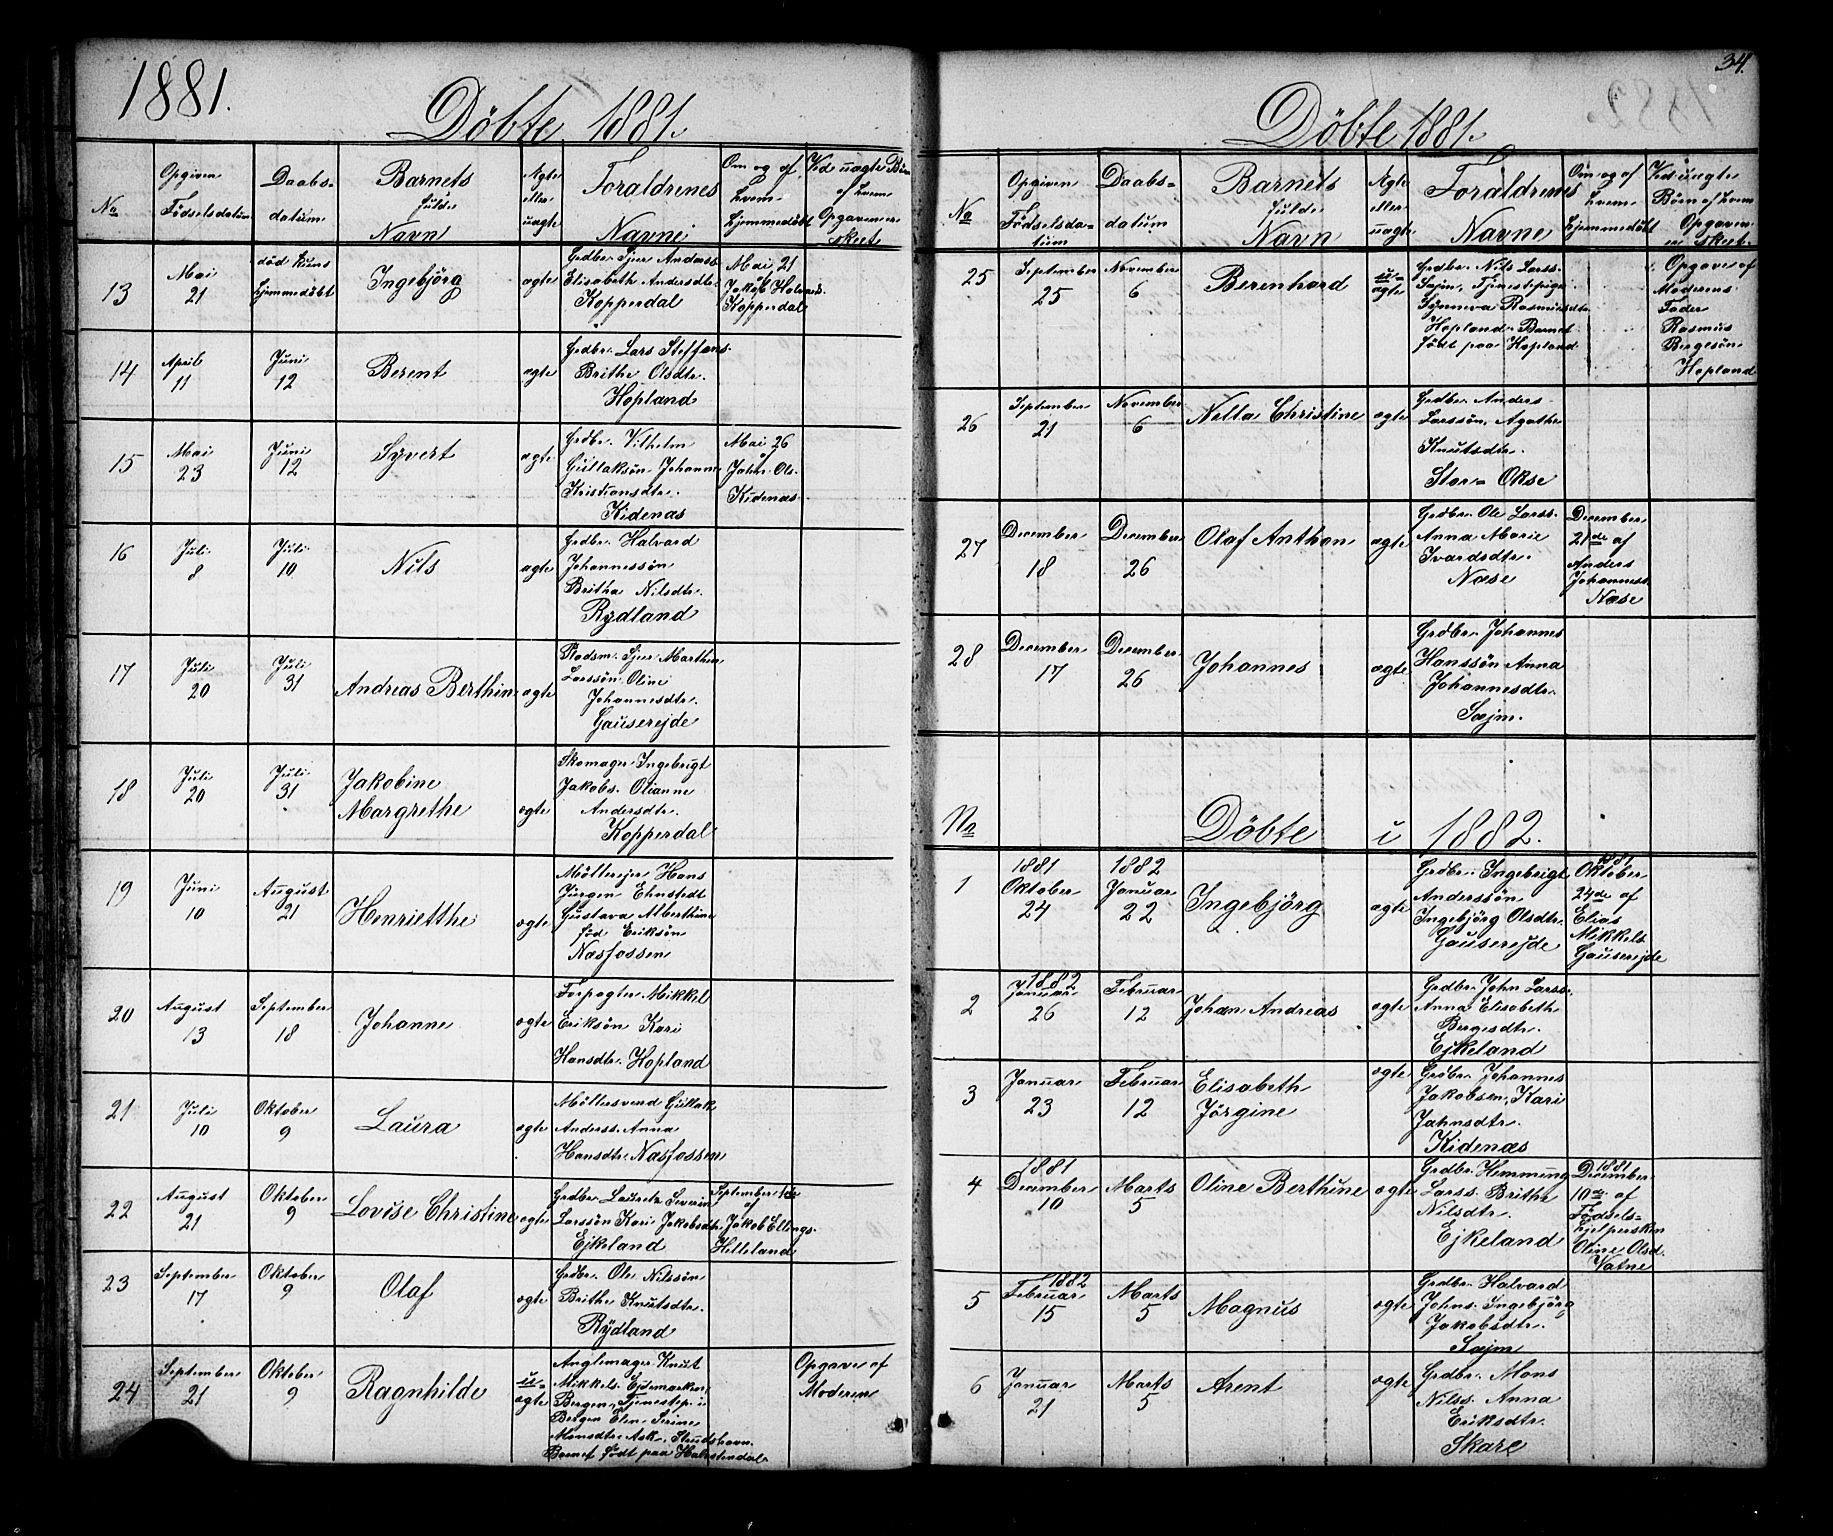 1881.
Döbte 1881.
No
Opgiven
Födselsdatum
Daabs-
datum
Barnets
fulde
Navn
Ægte
eller
uægte
Forældrenes
Navne
Om og af
hvem
hjemmedöbt
Ved uægte Börn
af hvem
Opgaven er
skeet
13
Mai
21
död kuns
hjemmedöbt
Ingebjörg
ægte
Grdbr. Sjur Anderss.
Elisabeth Andersdtr.
Kopperdal
Mai 21
Jakob Halvards.
Kopperdal
14
April
11
Juni
12
Berent
ægte
Grdbr. Lars Steffens.
Brithe Olsdtr.
Hopland
15
Mai
23
Juni
12
Syvert
ægte
Grdbr. Vilhelm
Gullaksön Johanne
Kristiansdtr.
Kidenæs
Mai 26
af
John Ols.
Kidenæs
16
Juli
8
Juli
10
Nils
ægte
Grdbr. Halvard
Johannessön
Britha Nilsdtr.
Rydland
17
Juli
20
Juli
31
Andreas Berthin
ægte
Pladsm. Sjur Marthin
Larssön Oline
Johannesdtr.
Gauserejde
18
Juli
20
Juli
31
Jakobine
Margrethe
ægte
Skomager Ingebrigt
Jakobs. Olianne
Andersdtr.
Kopperdal
19
Juni
10
August
21
Henrietthe
ægte
Möllerejer Hans
Jürgen Ehnstedt
Gustava Alberthine
föd Eriksön
Næsfossen
20
August
13
September
18
Johanne
ægte
Forpagter Mikkel
Eriksön Kari
Hansdtr. Hopland
21
Juli
10
Oktober
9
Laura
ægte
Möllersvend Gullak
Anderss. Anna
Hansdtr. Næsfossen
22
August
21
Oktober
9
Lovise Christine
ægte
Grdbr. Lauretz Severin
Larssön Kari Jakobsdtr.
Ejkeland
September 1ste
af
Jakob Ellings.
Helleland
23
September
17
Oktober
9
Olaf
ægte
Grdbr. Ole Nilssön
Brithe Knutsdtr.
Rydland
24
September
21
Oktober
9
Ragnhilde
u-
ægte
Anglemager Knut
Mikkels. Ejdemarken,
Bergen, Tjenestep. i
Bergen Elen Serine
Monsdtr. Ask, Studshavn.
Barnet födt paa Halstendal
Opgave af
Moderen
34.
Döbte 1881.
No
Opgiven
Födselsda-
tum
Daabs-
datum
Barnets
fulde
Navn
Ægte
eller
uægte
Forældrenes
Navne
Om og af
hvem
hjemmedöbt
Ved uægte
Börn af hvem
Opgaven
er skeet.
25
September
25
November
6
Berenhard
u-
ægte
Grdbr. Nils Larss.
Sæjm, Tjenestepige
Synneva Rasmusdtr.
Hopland. Barnet
födt paa Hopland
Opgave af
Moderens
Fader
Rasmus
Bergesön
Hopland
26
September
21
November
6
Nella Christine
ægte
Grdbr. Anders
Larssön, Agathe
Knutsdtr.
Stor-Okse
27
December
18
December
26
Olaf Anthon
ægte
Grdbr. Ole Larss.
Anna Marie
Ivarsdtr.
Næse
December
21de af
Anders
Johanness.
Næse
28
December
17
December
26
Johannes
ægte
Grdbr. Johannes
Hanssön Anna
Johannesdtr.
Sæjm.
No
Döbte i 1882.
1
1881
Oktober
24
1882
Januar
22
Ingebjörg
ægte
Grdbr. Ingebrigt
Anderssön
Ingebjörg Olsdtr.
Gauserejde
1881
Oktober
24de af
Elias
Mikkels.
Gauserejde
2
1882
Januar
26
Februar
12
Johan Andreas
ægte
Grdbr. John Larss.
Anna Elisabeth
Bergesdtr.
Ejkeland
3
Januar
23
Februar
12
Elisabeth
Jörgine
ægte
Grdbr. Johannes
Jakobsen, Kari
Jahnsdtr.
Kidenæs
4
1881
December
10
Marts
5
Oline Berthine
ægte
Grdbr. Hemming
Larss. Brithe
Nilsdtr.
Ejkeland
1881
December
10de af
Födsels-
hjelpersken
Oline Olsd.
Vatne
5
1882
Februar
15
Marts
5
Magnus
ægte
Grdbr. Halvard
Johns. Ingebjörg
Jakobsdtr.
Sæjm
6
Januar
21
Marts
5
Arent
ægte
Grdbr. Mons
Nilss. Anna
Eriksdtr.
Skare